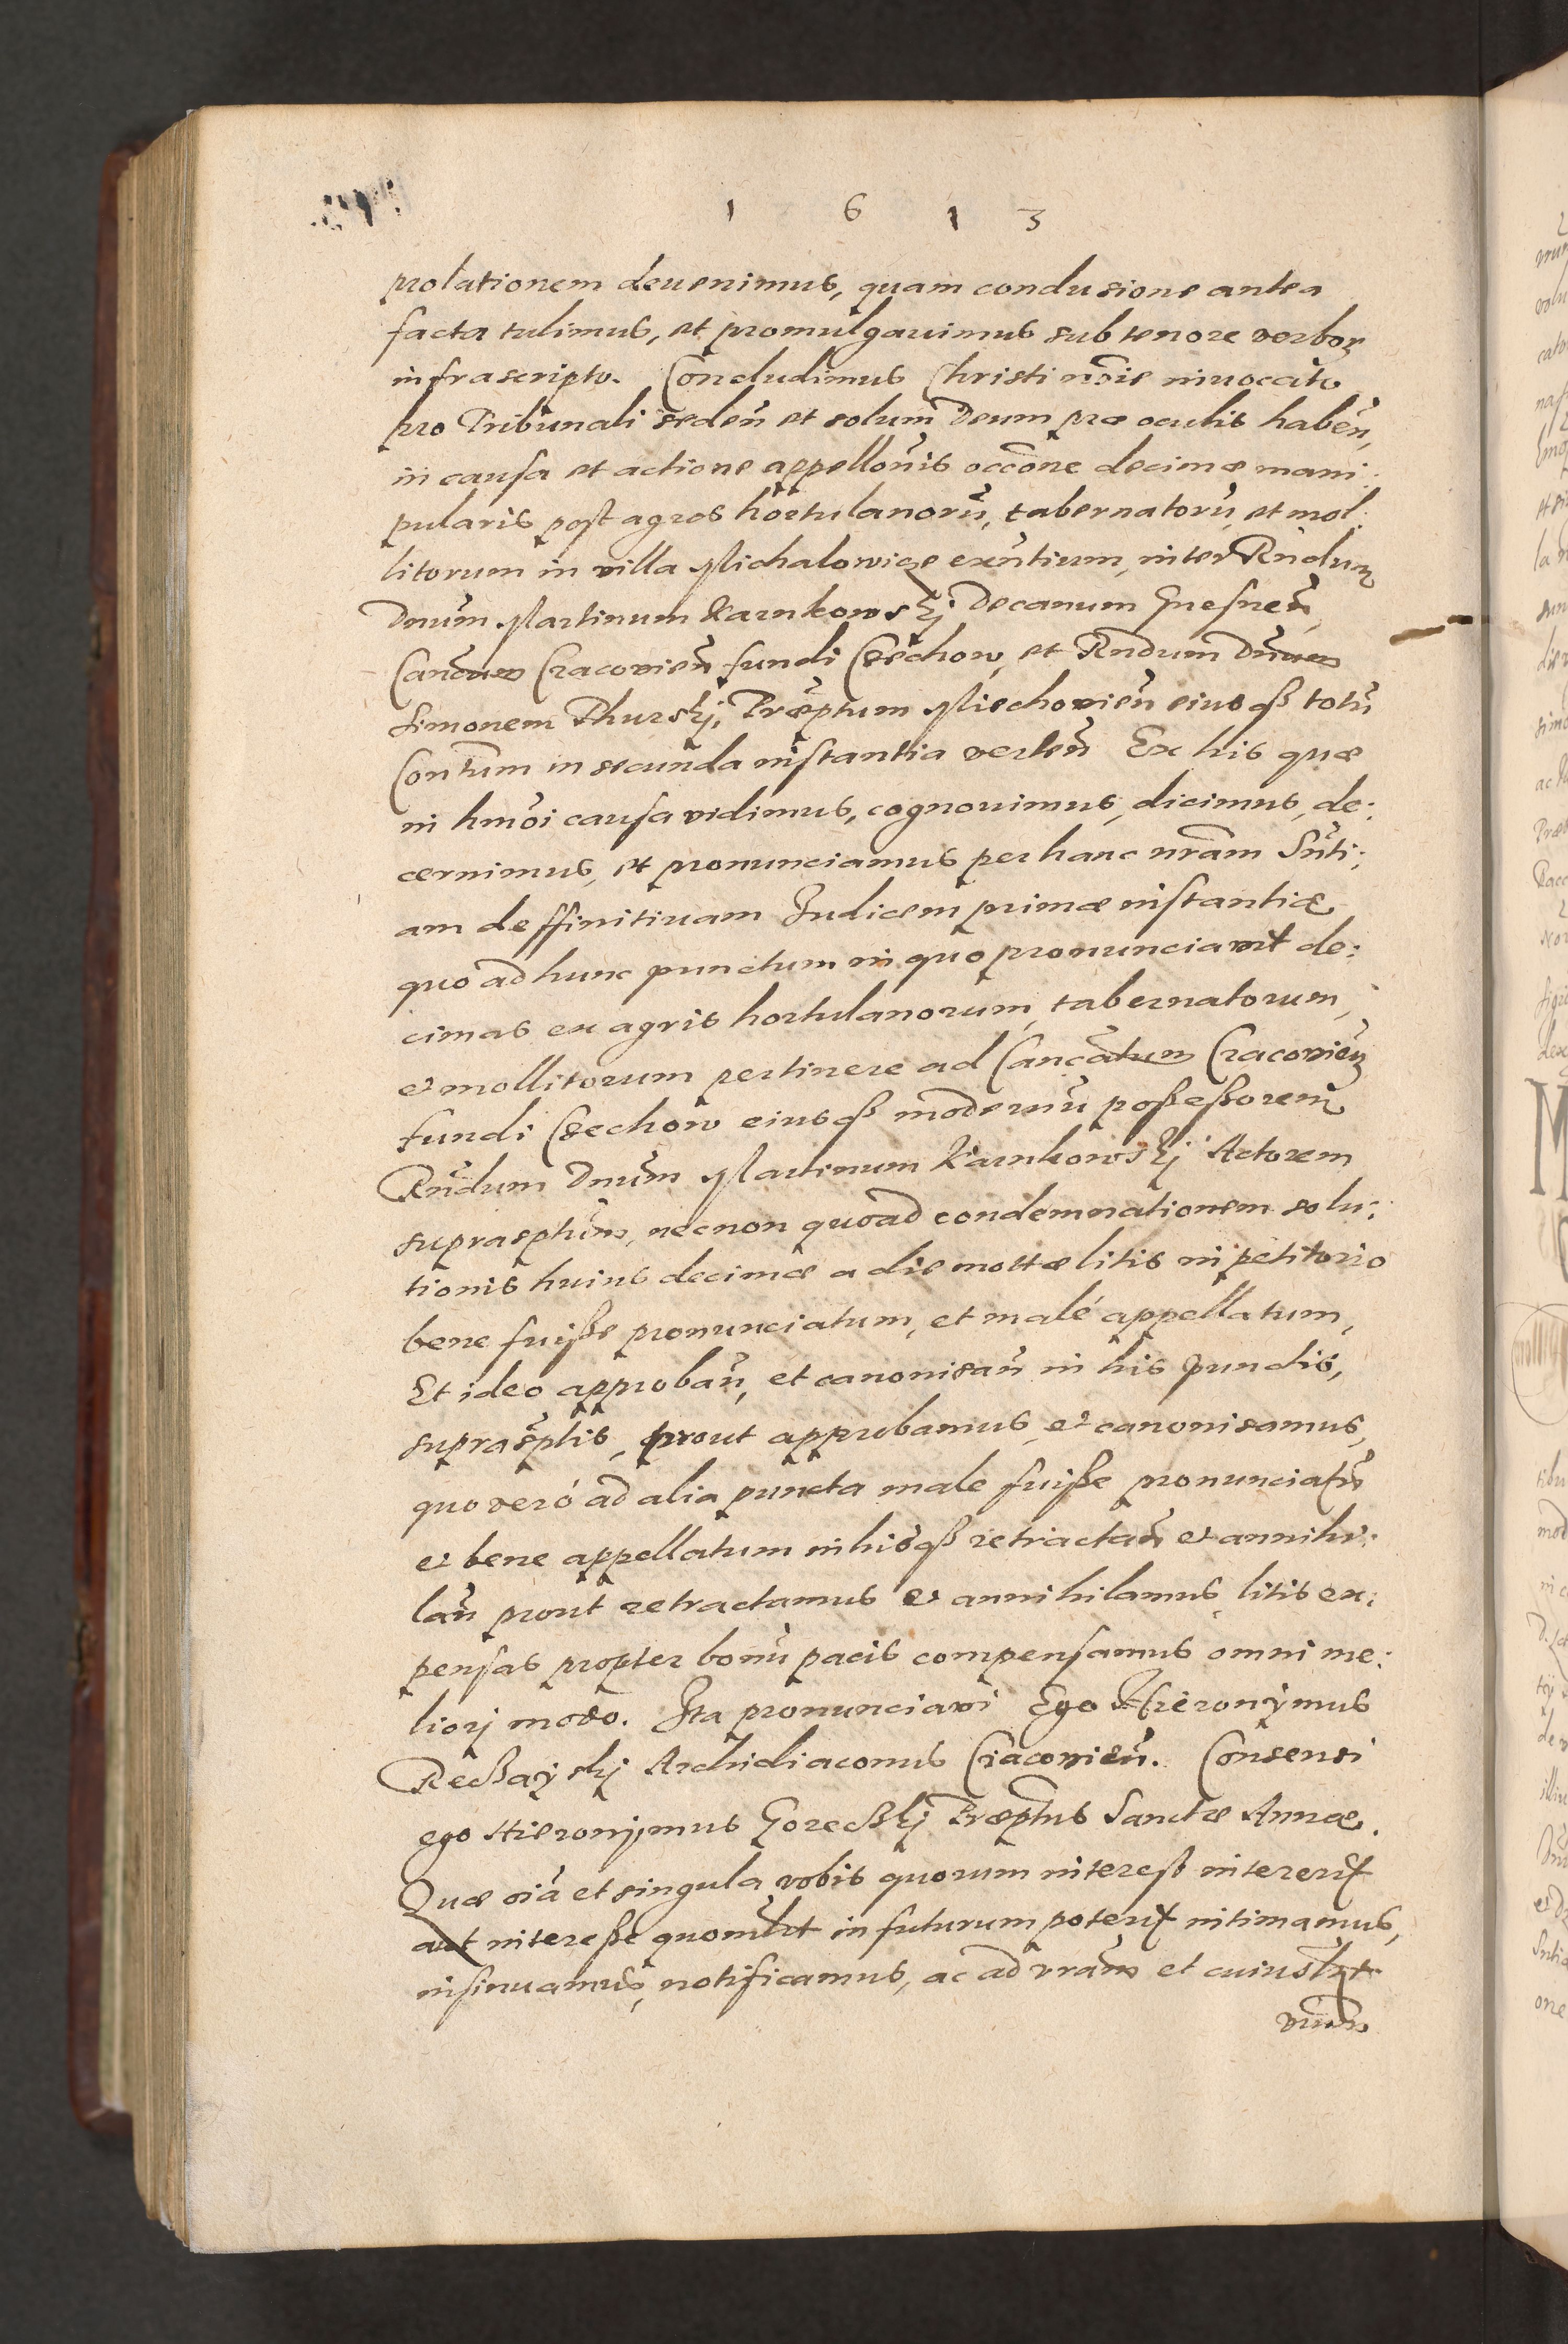 1 6 1 3
prolationem deuenimus, quam conclusione antea
facta tulimus, et promulgauimus sub tenore verboꝝ
infrascripto. Concludimus Christi nōie inuocato
pro Tribunali sedeñ et solum Deum præ oculis habeñ,
in causa et actione appellōnis occōne decimæ mani:
pularis post agros hortulanorū, tabernatorū, et mol:
litorum in villa Michalowice exn̄tium, inter Rn̄dum
Dnūm Martinum Karnkowskj Decanum Gnesneñ,
Canōcum Cracovieñ fundi Czechow, et Rn̄dum Dnūm
Simonem Thurskj, Præptum Miechovieñ eiusqß totū
Conv̄tum in secunda instantia verteñ Ex his quæ
in hmōi causa vidimus, cognouimus, dicimus, de:
cernimus, et pronunciamus per hanc nr̄am Sn̄ti:
am deffinitiuam Iudicem primæ instantiæ
quo ad hunc punctum in quo pronunciavit de:
cimas ex agris hortulanorum, tabernatorum,
et mollitorum pertinere ad Canc̄atum Cracovieñ
fundi Czechow eiusqß modernū poßeßorem
Rn̄dum Dnūm Martinum Karnkowskj Actorem
suprasptūm, necnon quoad condemnationem solu:
tionis huius decimæ a die mottæ litis in petitorio
bene fuiße pronunciatum, et malé appellatum,
Et ideo approbañ, et canonisañ in his punctis,
suprasp̄tis, prout approbamus et canonisamus,
quo veró ad alia puncta male fuiße pronunciatū
et bene appellatum in hisqß retractañ et annihi:
lañ prout retractamus et annihilamus, litis ex:
pensas propter bonū pacis compensamus omni me:
liorj modo. Ita pronunciavi Ego Hieronÿmus
Recßaÿskj Archidiaconus Cracovieñ. Consensi
ego Hieronÿmus Gorecßkj Præptus Sanctæ Annæ.
Quæ oīa et singula vobis quorum interest intererit
aut intereße quomōlt in futurum poterit intimamus,
insinuamus, notificamus, ac ad vr̄am et cuiuslt
vr̄um